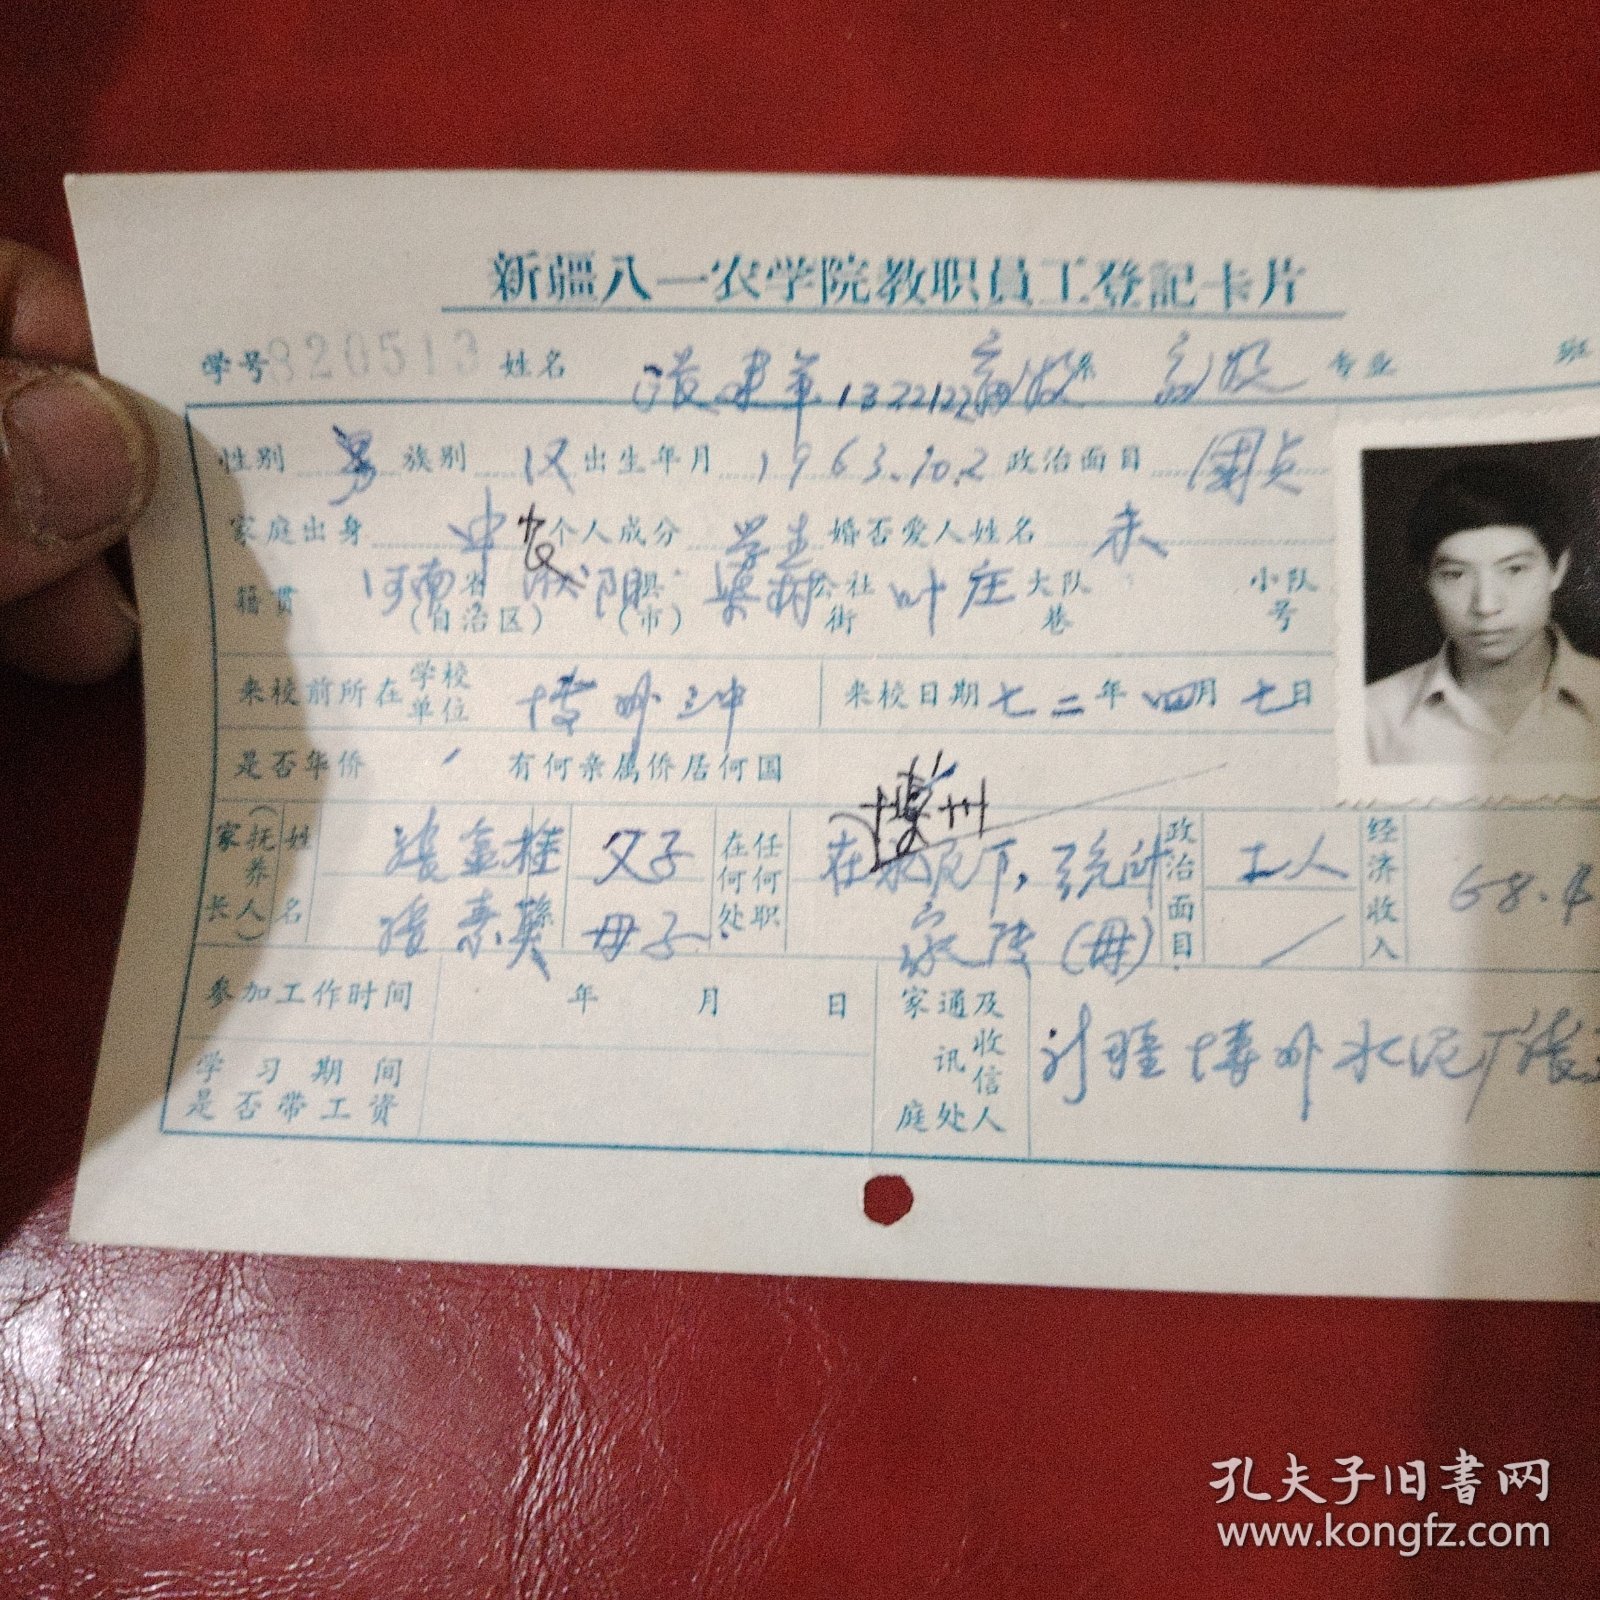 新疆八一农学院教职员工登記卡片
学号 820513 姓名 建军 1322122 系 专业 班
性别 男 族别 汉 出生年月 1963.10.2 政治面目 团员
家庭出身 中农 个人成分 学生 婚否爱人姓名 未
籍贯 河南省(自治区) 阳县(市) 公社街 叶庄大队巷 小队号
来校前所在学校单位 博州三中 来校日期 七二年四月七日
是否华侨 有何亲属侨居何国
博州
家长(抚养人)姓名 金 父子 在何处任何职 在 统计 政治面目 工人 经济收入 68.4
素 母子 家 (母)
参加工作时间 年 月 日 家庭通讯处及收信人 新疆博州水泥厂
学习期间是否带工资
孔夫子旧書网
www.kongfz.com